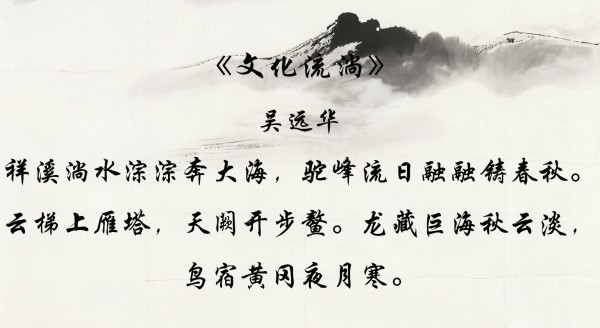 《文化流淌》
吴远华
祥溪淌水淙淙奔大海，驼峰流日融融铸春秋。
云梯上雁塔，天阙开步鳌。龙藏巨海秋云淡，
鸟宿黄冈夜月寒。